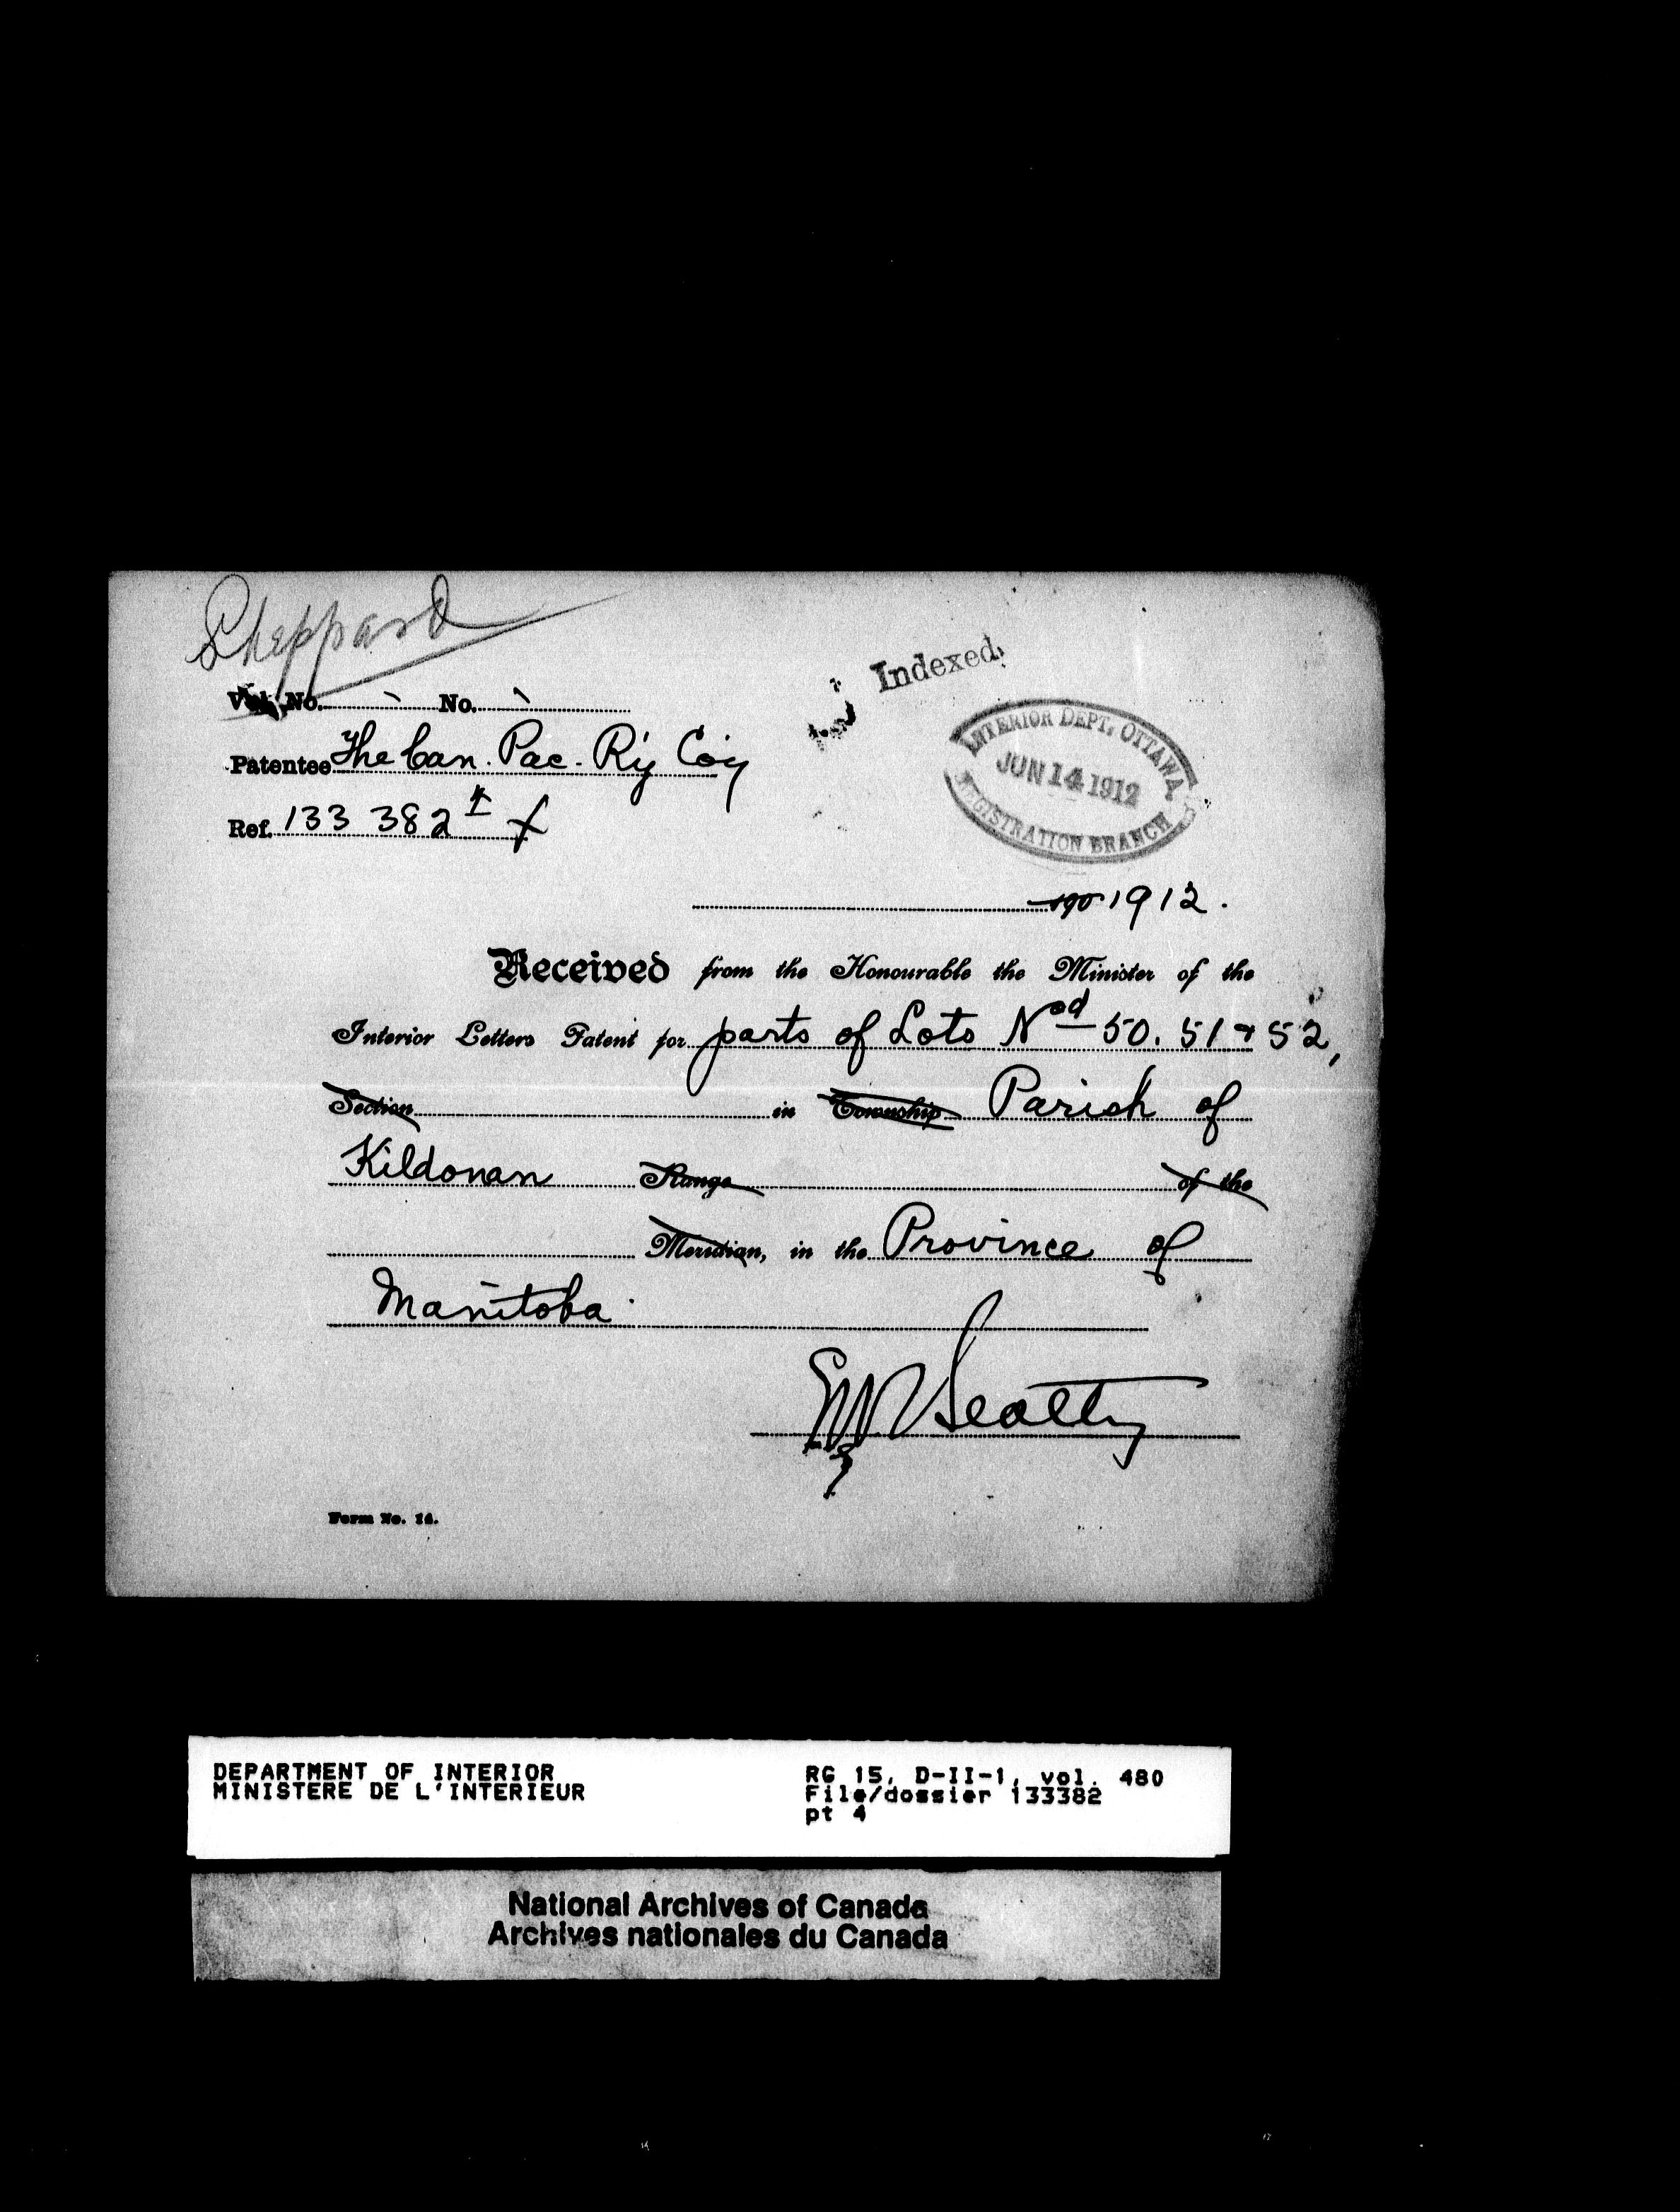 Sheppard
Indexed
Vol. No. No.
INTERIOR DEPT, OTTAWA
JUN 14 1912
REGISTRATION BRANCH
Patentee The Can. Pac. Ry Coy
Ref. 133 382 4
190 1912.
Received from the Honourable the Minister of the
Interior Letters Patent for parts of Lots Nos 50. 51 & 52,
Section in Township Parish of
Kildonan Range of the
Meridian, in the Province of
Manitoba.
EW Beatty
Form No. 14.
DEPARTMENT OF INTERIOR
MINISTERE DE L'INTERIEUR
RG 15, D-II-1, vol. 480
File/dossier 133382
pt 4
National Archives of Canada
Archives nationales du Canada